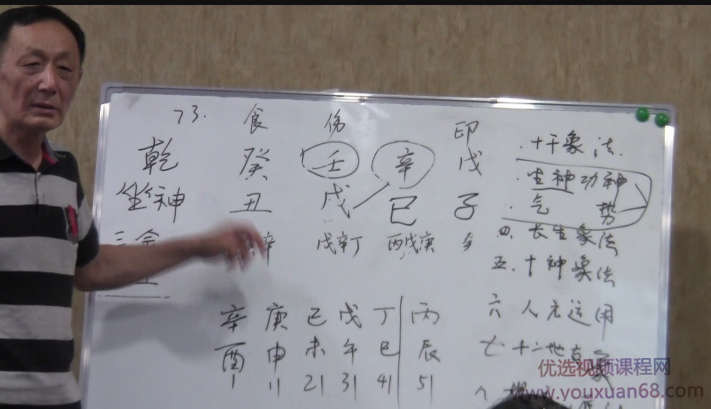 73. 食 伤 印
乾 癸 壬 辛 戊
坐神 丑 戌 巳 子
辛 戊辛丁 丙戊庚
辛 庚 己 戊 丁 丙
酉 申 未 午 巳 辰
1 11 21 31 41 51
.十干象法.
.坐神功神
.气势
四.长生象法
五.十神象法
六 人元运用
七 十二地支象
八
优选视频课程网
www.youxuan68.com